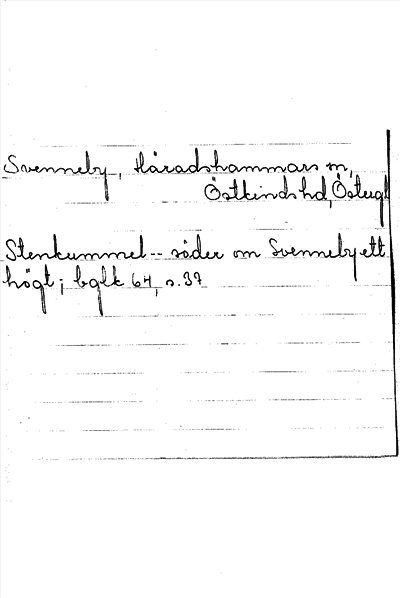 Svenneby, Häradshammars sn,
Östkinds hd, Östergt
Stenkummel -- söder om Svenneby ett
högt; bglk 64, s. 37